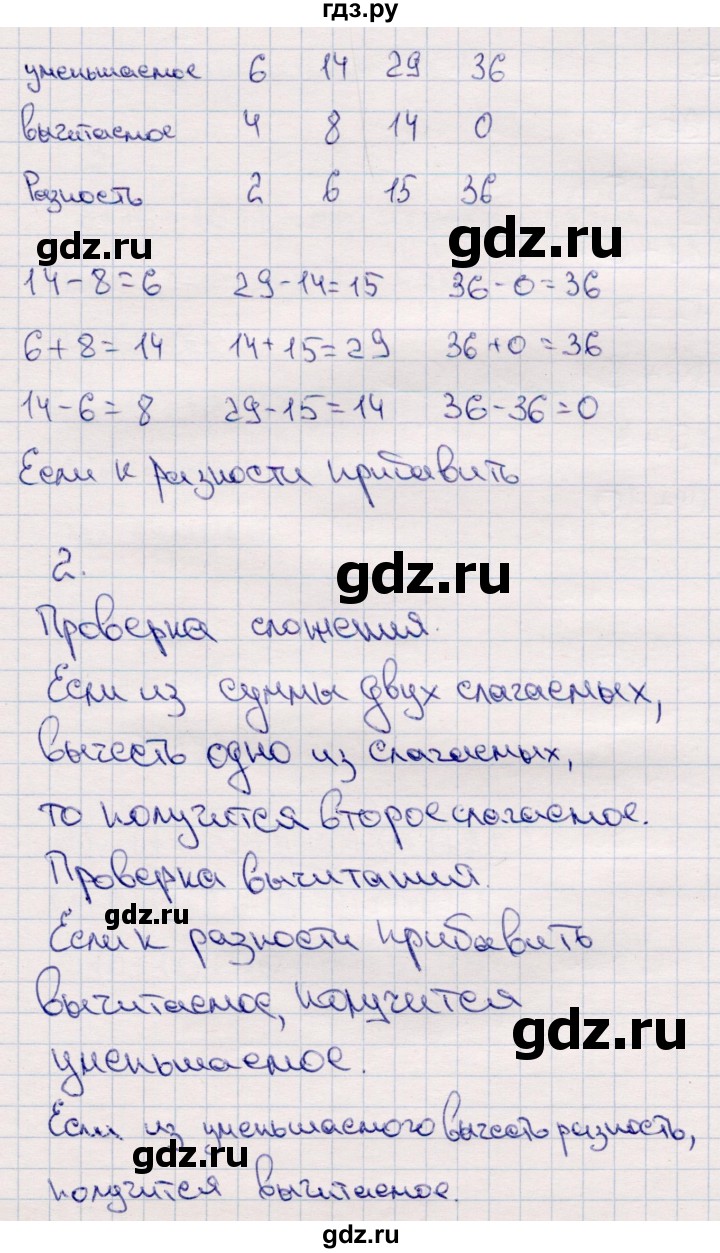 гдз.ру
уменьшаемое 6 14 29 36
вычитаемое 4 8 14 0
Разность 2 6 15 36
gdz.ru gdz.ru
14-8=6 29-14=15 36-0=36
6+8=14 14+15=29 36+0=36
14-6=8 29-15=14 36-36=0
Если к разности прибавить
2. gdz.ru
Проверка сложения.
Если из суммы двух слагаемых,
вычесть одно из слагаемых,
то получится второе слагаемое.
Проверка вычитания.
gdz.ru
Если к разности прибавить
вычитаемое, получится
gdz.ru
уменьшаемое.
Если из уменьшаемого вычесть разность,
gdz.ru
получится вычитаемое.
gdz.ru